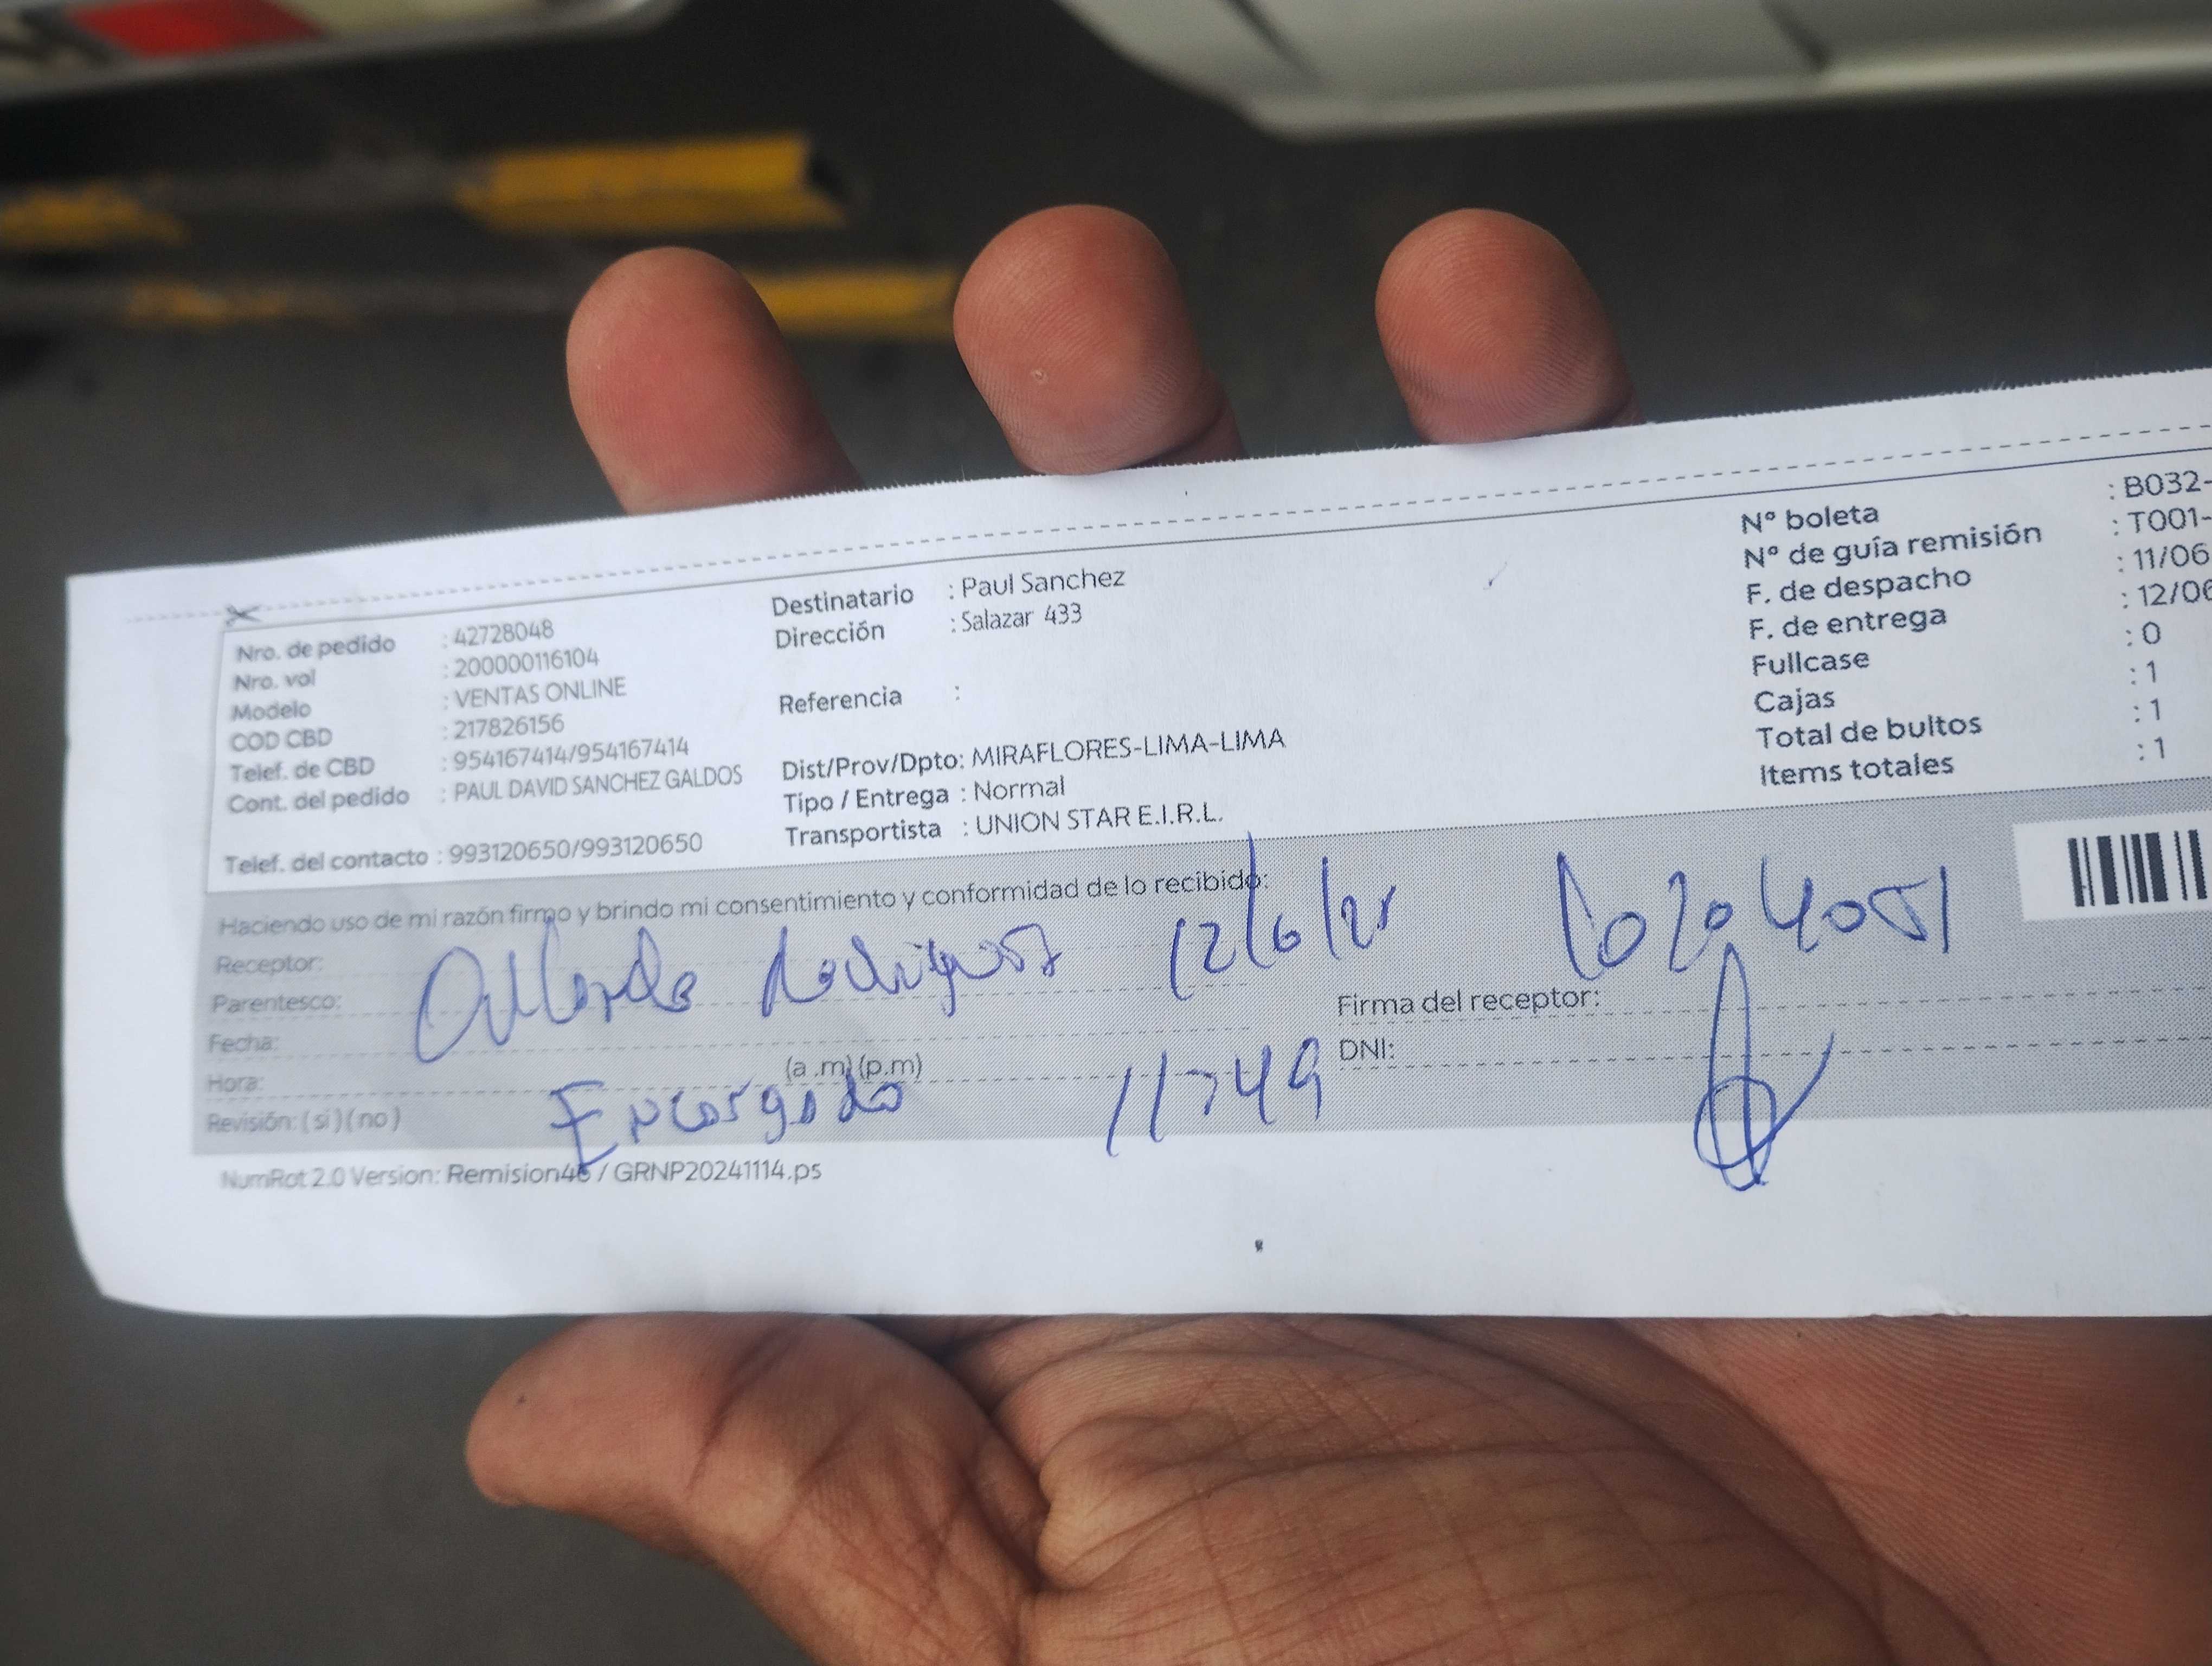 Nro. de pedido : 42728048
Nro. vol : 200000116104
Modelo : VENTAS ONLINE
COD CBD : 217826156
Telef. de CBD : 954167414/954167414
Cont. del pedido : PAUL DAVID SANCHEZ GALDOS
Telef. del contacto : 993120650/993120650
Destinatario : Paul Sanchez
Dirección : Salazar 433
Referencia :
Dist/Prov/Dpto: MIRAFLORES-LIMA-LIMA
Tipo / Entrega : Normal
Transportista : UNION STAR E.I.R.L.
N° boleta : B032-
N° de guía remisión : T001-
F. de despacho : 11/06
F. de entrega : 12/06
Fullcase : 0
Cajas : 1
Total de bultos : 1
Items totales : 1
Haciendo uso de mi razón firmo y brindo mi consentimiento y conformidad de lo recibido:
Receptor:
Parentesco:
Fecha:
Hora: (a .m) (p.m)
Revisión: ( si ) ( no )
Rodriguez 12/6/25
Encargado 11:49
Firma del receptor:
DNI:
NumRot 2.0 Version: Remision46 / GRNP20241114.ps